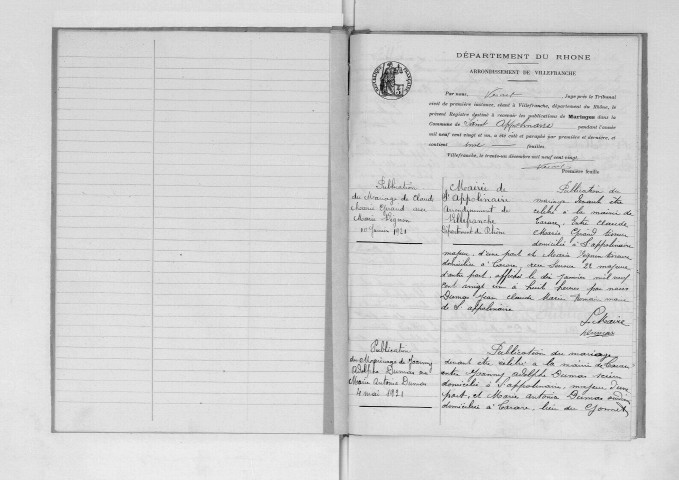 DÉPARTEMENT DU RHONE
ARRONDISSEMENT DE VILLEFRANCHE
Par nous, Juge près le Tribunal
civil de première instance, séant à Villefranche, département du Rhône, le
présent Registre destiné à recevoir les publications de Mariages dans la
Commune de Saint Appolinaire pendant l'année
mil neuf cent vingt et un, a été coté et paraphé par première et dernière, et
contient feuilles.
Villefranche, le trente-un décembre mil neuf cent vingt.
Première feuille
Publication
du Mariage de Claude
Marie Girand avec
Marie Vignon
10 Janvier 1921
Mairie de
St Appolinaire
Arrondissement de
Villefranche
Département du Rhône
Publication de
mariage devant être
célébré à la mairie de
Tarare, Entre Claude
Marie Girand
domicilié à St appolinaire
majeur, d'une part et Marie Vignon
domiciliée à Tarare, rue 22 majeure
d'autre part, affiché le dix janvier mil neuf
cent vingt un à huit heures par nous
Dumas Jean Claude Marie maire
de St appolinaire
Le Maire
Dumas
Publication
du Mariage de Joanny
Adolphe Dumas et
Marie Antonia Dumas
4 mai 1921
Publication du mariage
devant être célébré à la mairie de Tarare
entre Joanny Adolphe Dumas
domicilié à St appolinaire, majeur d'une
part, et Marie Antonia Dumas
domiciliée à Tarare, lieu de